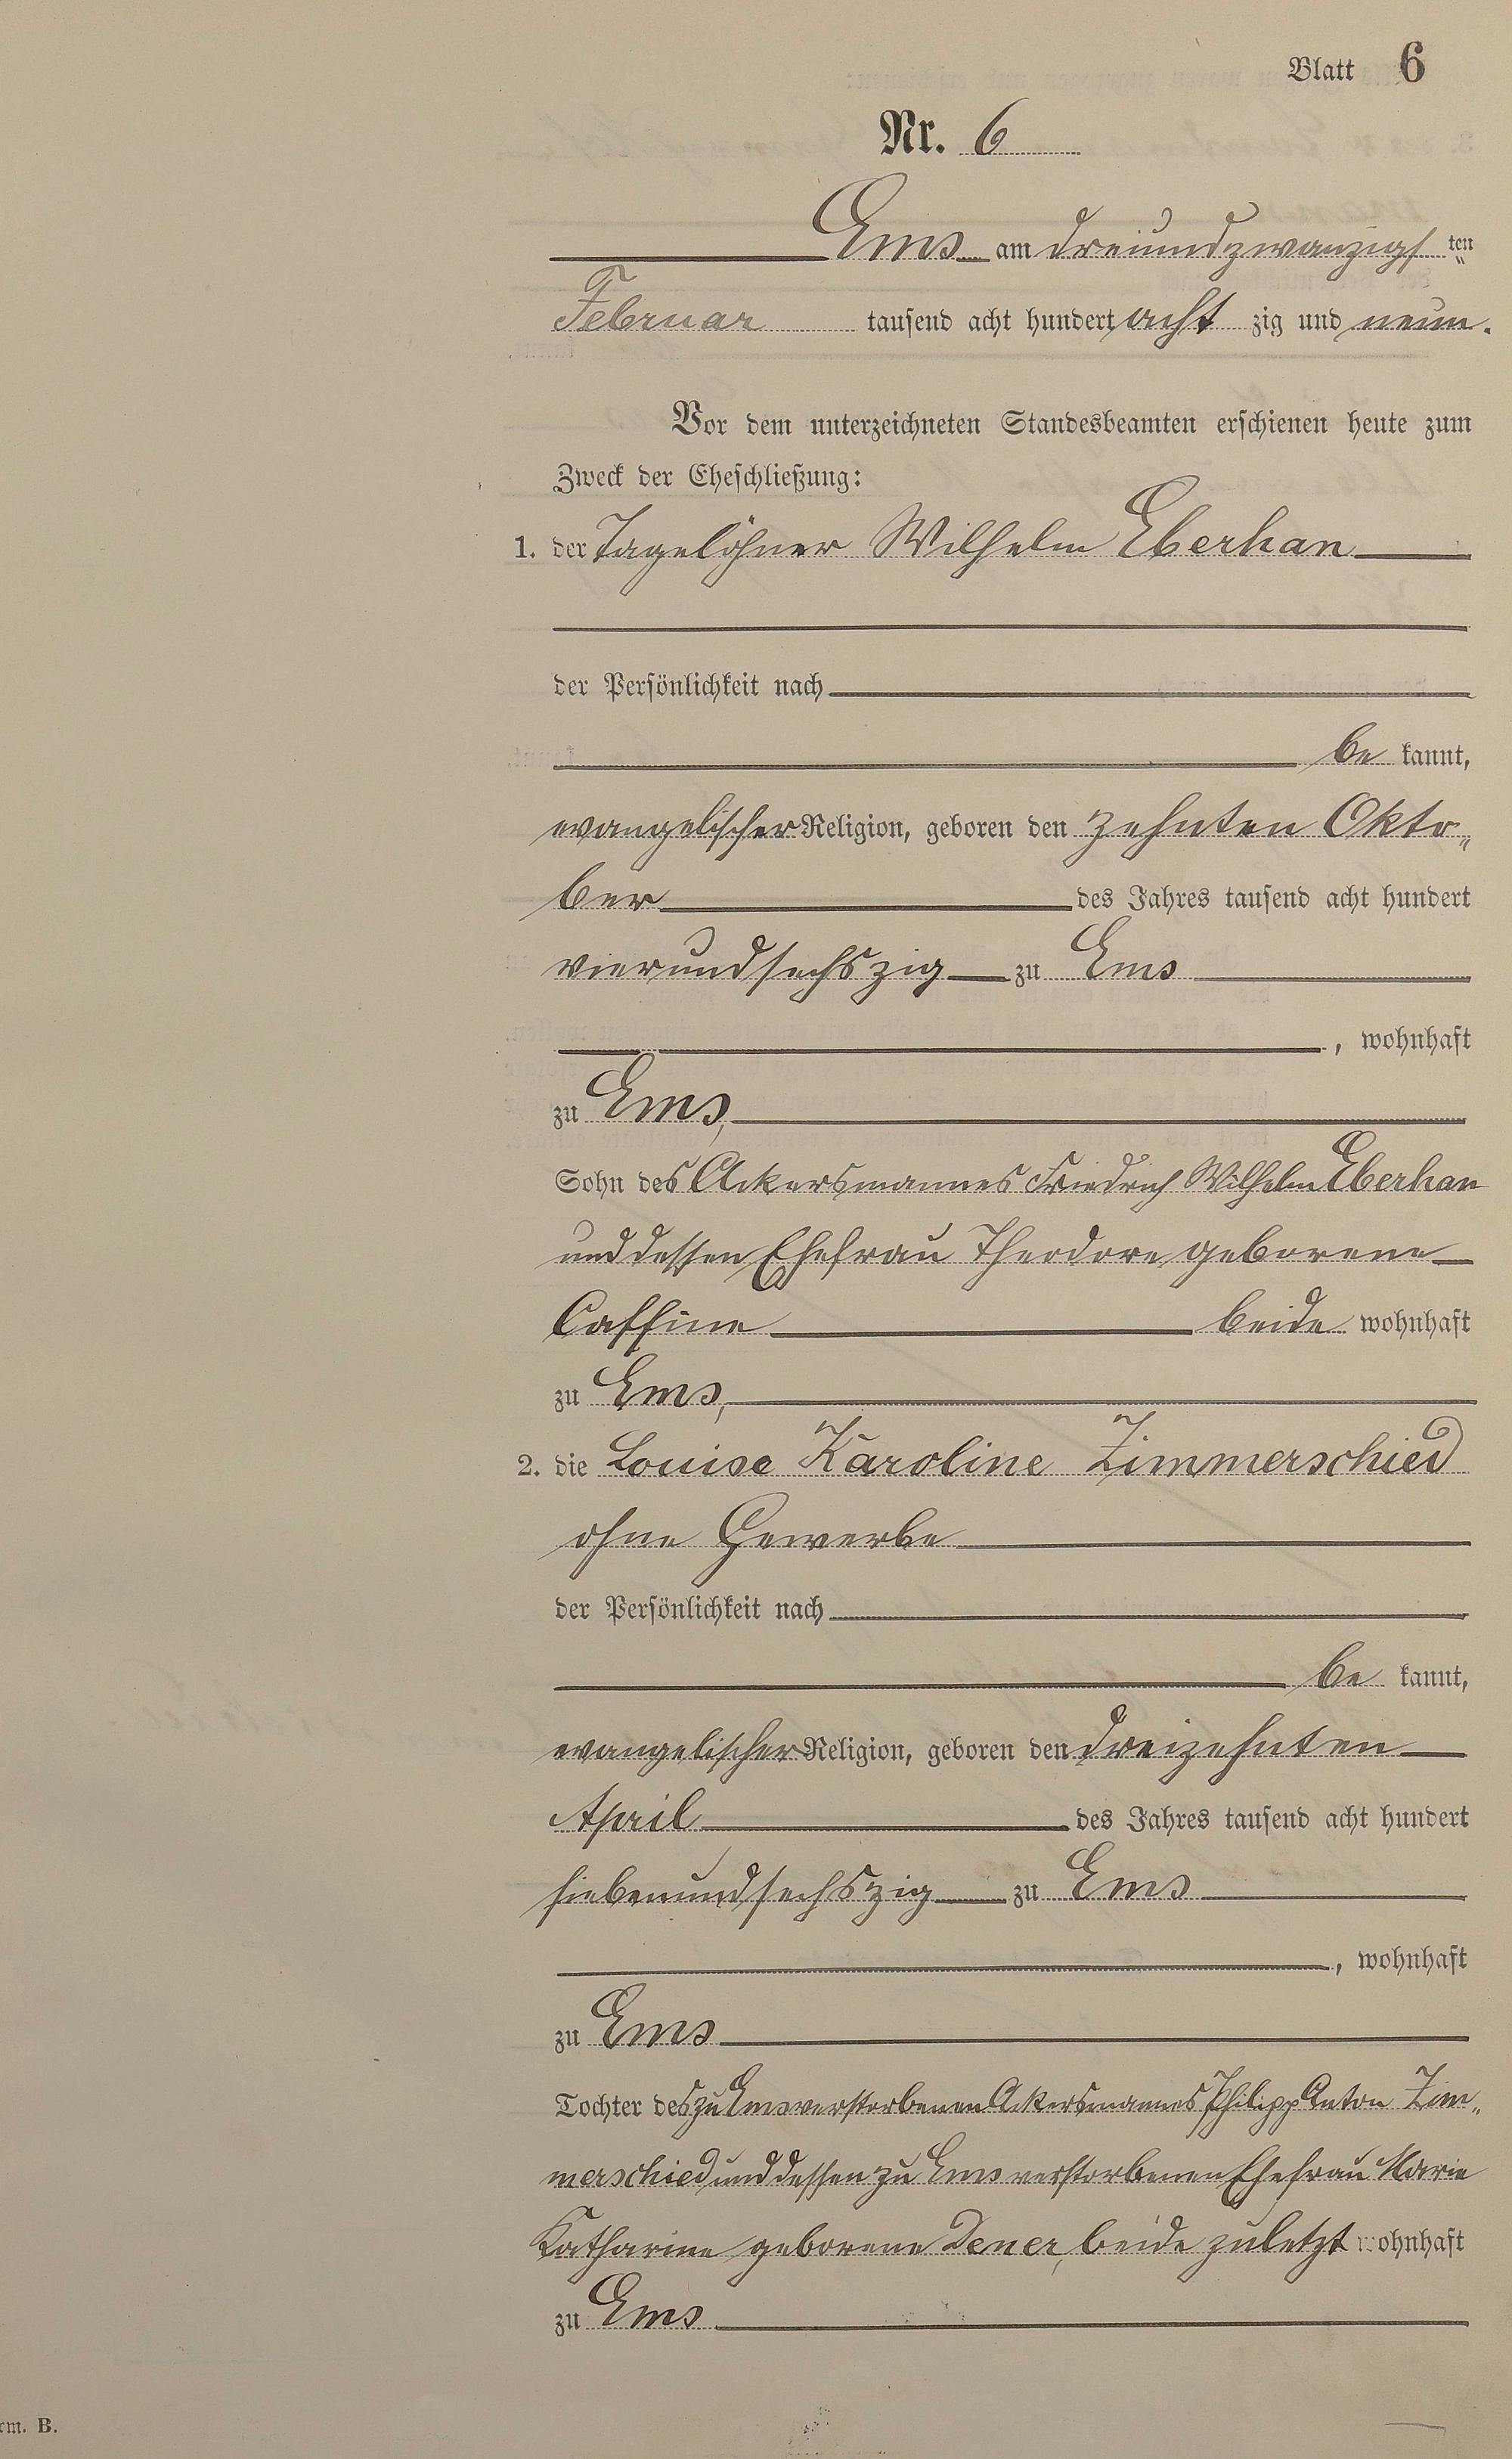 Blatt 6
Nr. 6
Ems am dreiundzwanzigs ten
Februar tausend acht hundert acht zig und neun.
Vor dem unterzeichneten Standesbeamten erschienen heute zum
Zweck der Eheschließung:
1. der Tagelöhner Wilhelm Eberhan
der Persönlichkeit nach
be kannt,
evangelischer Religion, geboren den zehnten Okto„
ber des Jahres tausend acht hundert
vierundsechszig zu Ems
, wohnhaft
zu Ems,
Sohn des Ackersmannes Friedrich Wilhelm Eberhan
und dessen Ehefrau Theodore geborene
Caffine beide wohnhaft
zu Ems,
2. die Louise Karoline Zimmerschied
ohne Gewerbe
der Persönlichkeit nach
be kannt,
evangelischer Religion, geboren den dreizehnten
April des Jahres tausend acht hundert
siebenundsechszig zu Ems
, wohnhaft
zu Ems
Tochter des zu Ems verstorbenen Ackersmannes Philipp Anton Zim„
merschied und dessen zu Ems verstorbenen Ehefrau Marie
Katharine geborene Dener, beide zuletzt wohnhaft
zu Ems
rm. B.